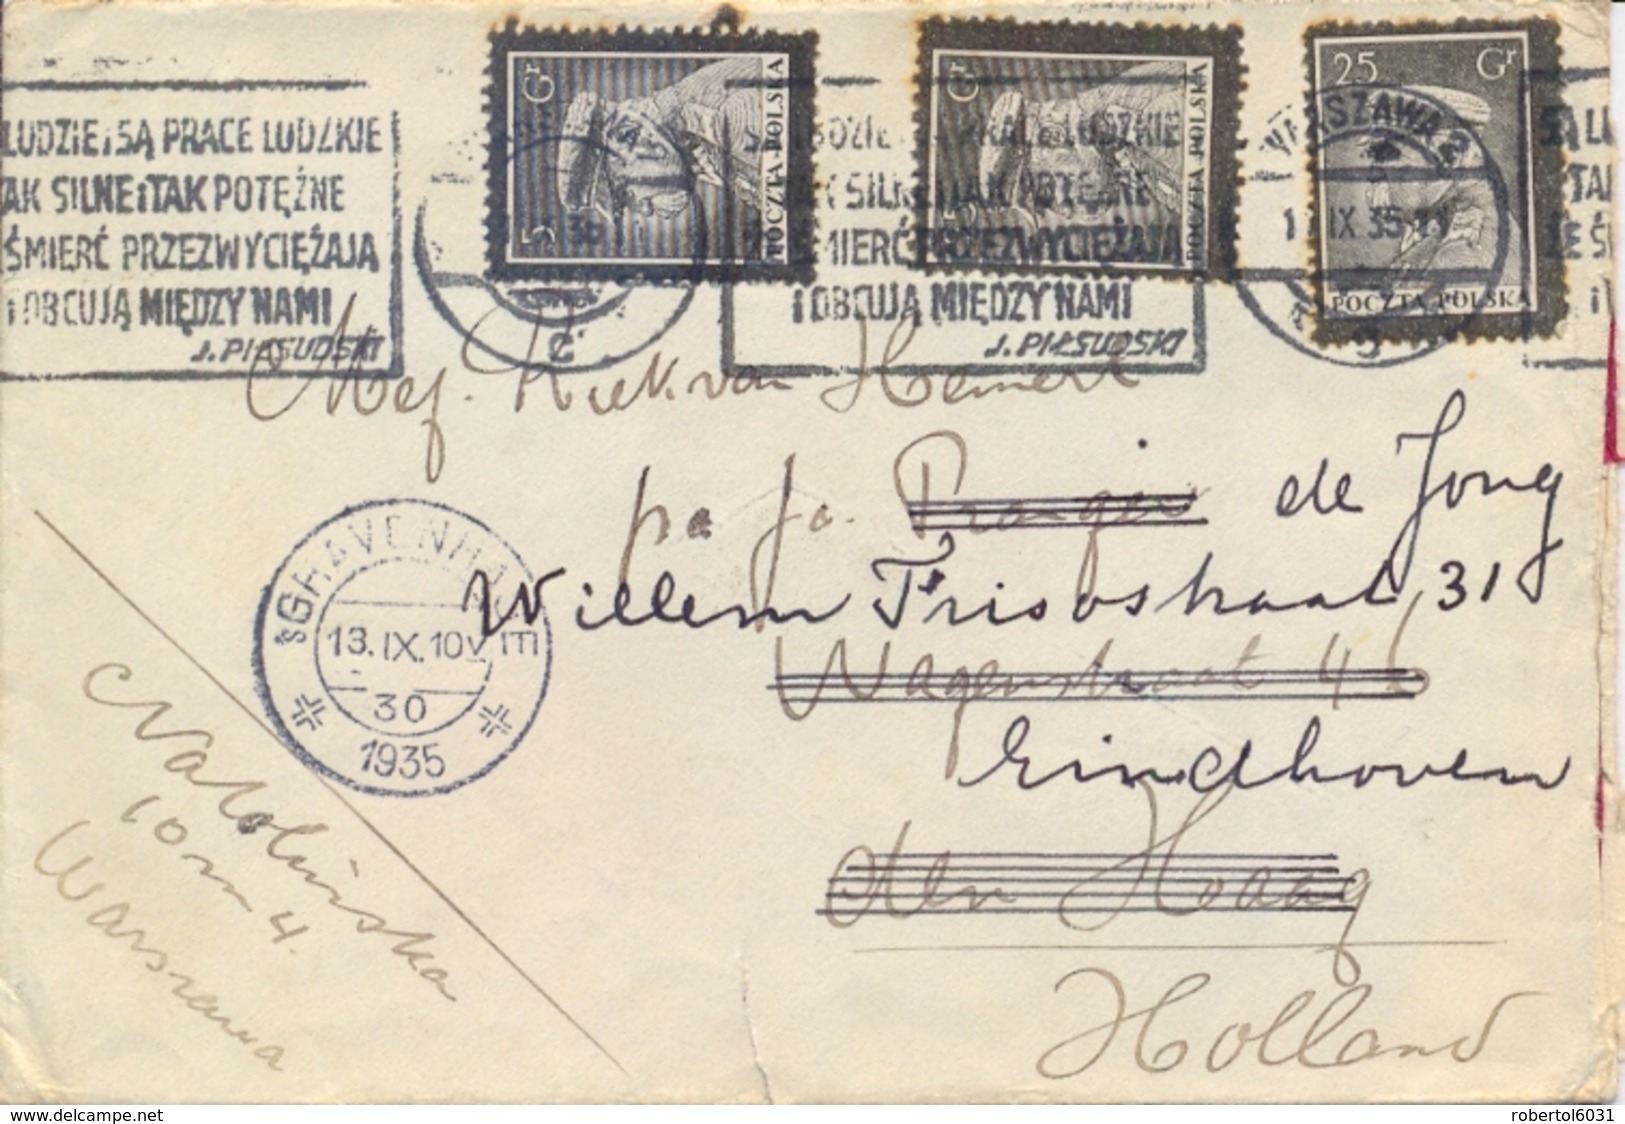 5 Gr POCZTA POLSKA
5 Gr POCZTA POLSKA
25 Gr POCZTA POLSKA
LUDZIE, SĄ PRACE LUDZKIE
TAK SILNE I TAK POTĘŻNE
ŚMIERĆ PRZEZWYCIĘŻAJĄ
I OBCUJĄ MIĘDZY NAMI
J. PIŁSUDSKI
LUDZKIE
TAK SILNE I TAK POTĘŻNE
ŚMIERĆ PRZEZWYCIĘŻAJĄ
I OBCUJĄ MIĘDZY NAMI
J. PIŁSUDSKI
WARSZAWA 2
IX 35
Mej. Riek. van Hemert
pa fa. Pranger de Jong
Willem Frisostraat, 31
Wagenstraat 46
Eindhoven
den Haag
Holland
'SGRAVENHAGE
13.IX.10V
30
1935
Wolińska
10 m 4.
Warszawa
www.delcampe.net
robertol6031